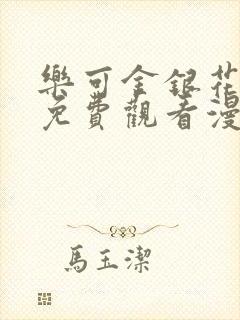 樂可金銀花
免費觀看漫
馬玉潔